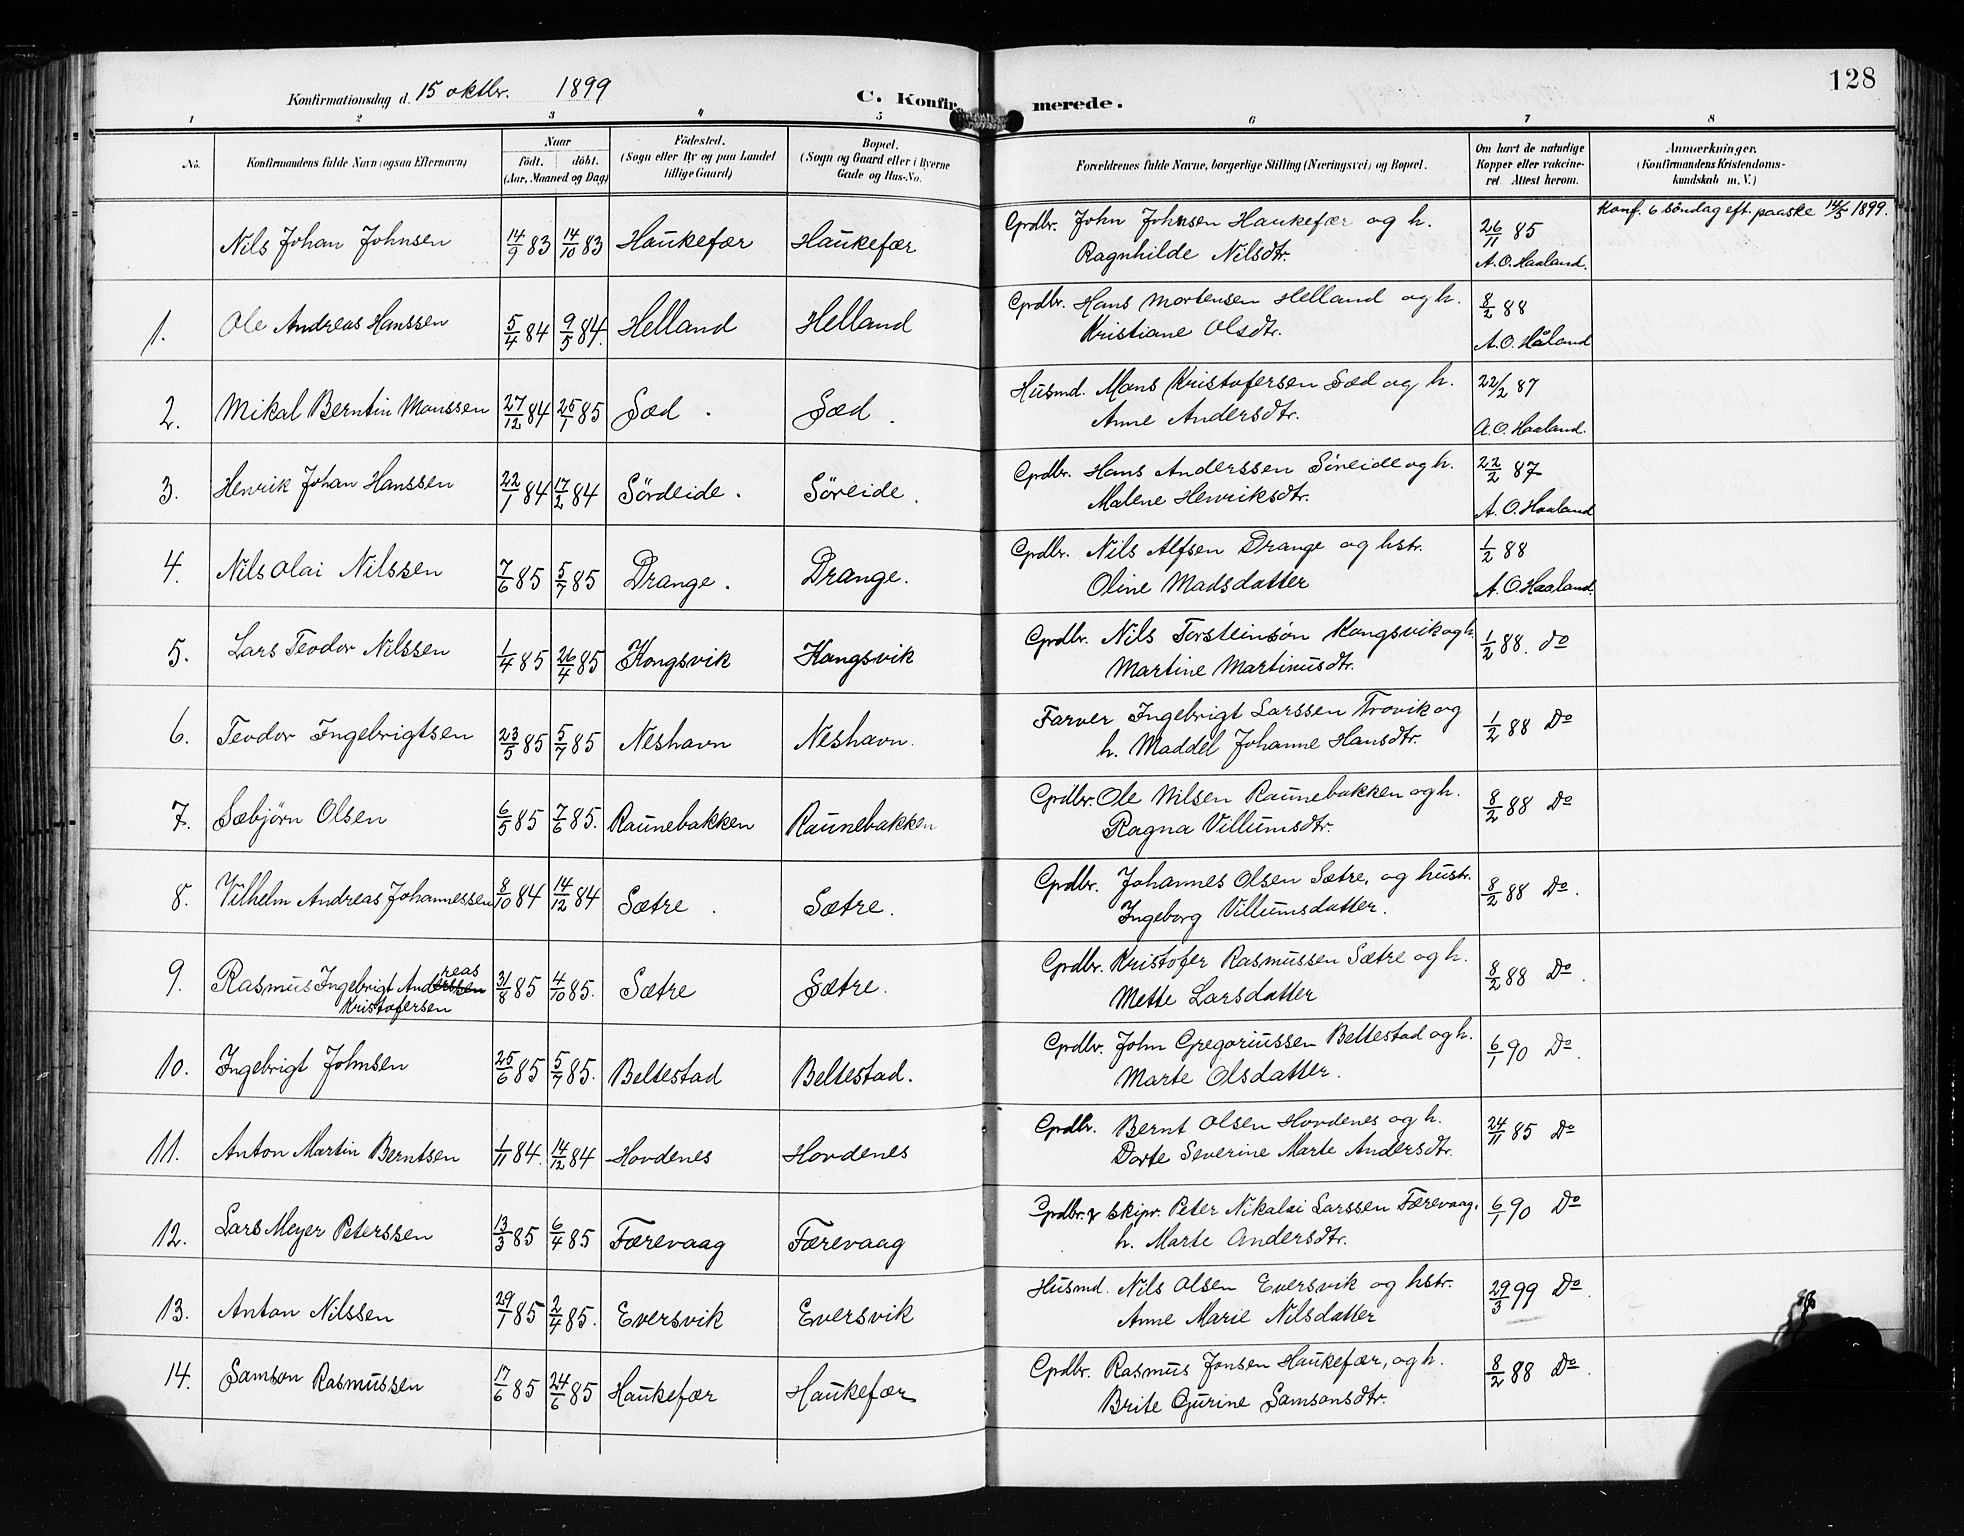 128
Konfirmationsdag d. 15 oktbr. 1899 C. Konfirmerede.
1 2 3 4 5 6 7 8
No. Konfirmandens fulde Navn (ogsaa Efternavn) Naar født. døbt. (Aar, Maaned og Dag) Födested. (Sogn eller By og paa Landet tillige Gaard) Bopæl. (Sogn og Gaard eller i Byerne Gade og Hus-No. Forældrenes fulde Navne, borgerlige Stilling (Næringsvei) og Bopæl. Om havt de naturlige Kopper eller vakcineret. Attest herom. Anmerkninger. (Konfirmandens Kristendomskundskab m. V.)
Nils Johan Johnsen 14/9 83 14/10 83 Haukefær Haukefær Grdbr. John Johnsen Haukefær og h. 26/11 85 Konf. 6 söndag eft. paaske 14/5 1899.
Ragnhilde Nilsdtr. A. O. Haaland.
1. Ole Andreas Hanssen 5/4 84 9/5 84. Helland Helland Grdbr. Hans Mortensen Helland og h. 8/2 88
Kristiane Olsdtr. A. O. Håland
2. Mikal Berntin Monssen 27/12 84 25/1 85 Sæd . Sæd . Husmd. Mons Kristofersen Sæd og h. 22/2 87
Anne Andersdtr. A. O. Haaland.
3. Henrik Johan Hanssen 22/1 84 17/2 84 Sördeide . Søreide . Grdbr. Hans Anderssen Søreide og h. 22/2 87
Malene Henriksdtr. A. O. Haaland
4. Nils Olai Nilssen 7/6 85 5/7 85 Drange . Drange. Grdbr. Nils Alfsen Drange og hstr. 1/2 88
Oline Madsdatter A. O. Haaland.
5. Lars Teodor Nilssen 1/4 85 26/4 85 Kongsvik Kongsvik Grdbr. Nils Torsteinsøn Kongsvik og h. 1/2 88. do
Martine Martinusdtr.
6. Teodor Ingebrigtsen 23/5 85 5/7 85 Neshavn Neshavn. Farver Ingebrigt Larssen Trovik og 1/2 88 Do
h. Maddel Johanne Hansdtr.
7. Sæbjörn Olsen 6/5 85 7/6 85. Raunebakken Raunebakken Grdbr. Ole Nilsen Raunebakken og h. 8/2 88 Do
Ragna Villumsdtr.
8. Vilhelm Andreas Johannessen 8/10 84 14/12 84 Sætre . Sætre. Grdbr. Johannes Olsen Sætre, og hustr. 8/2 88 Do.
Ingeborg Villumsdatter.
9. Rasmus Ingebrigt Andreas Kristofersen 31/8 85 4/10 85. Sætre Sætre. Grdbr. Kristofer Rasmussen Sætre og h. 8/2 88 Do.
Mette Larsdatter
10. Ingebrigt Johnsen 25/6 85 5/7 85. Beltestad Beltestad. Grdbr. John Gregoriussen Beltestad og h. 6/1 90 Do.
Marte Olsdatter.
11. Anton Martin Berntsen 1/11 84. 14/12 84 Hovdenes Hovdenes Grdbr. Bernt Olsen Hovdenes og h. 24/11 85 Do
Dorte Severine Marte Andersdtr.
12. Lars Meyer Peterssen 13/3 85 6/4 85 Færevaag Færevaag Grdbr. & skipr. Peter Nikolai Larssen Færevaag, 6/1 90 Do
h. Marte Andersdtr.
13. Anton Nilssen 29/1 85 2/4 85. Eversvik Eversvik Husmd. Nils Olsen Eversvik og hstr. 29/3 99 Do.
Anne Marie Nilsdatter
14. Samson Rasmussen 17/6 85 24/6 85 Haukefær Haukefær Grdbr. Rasmus Jonsen Haukefær, og h. 8/2 88 Do.
Brite Gurine Samsonsdtr.